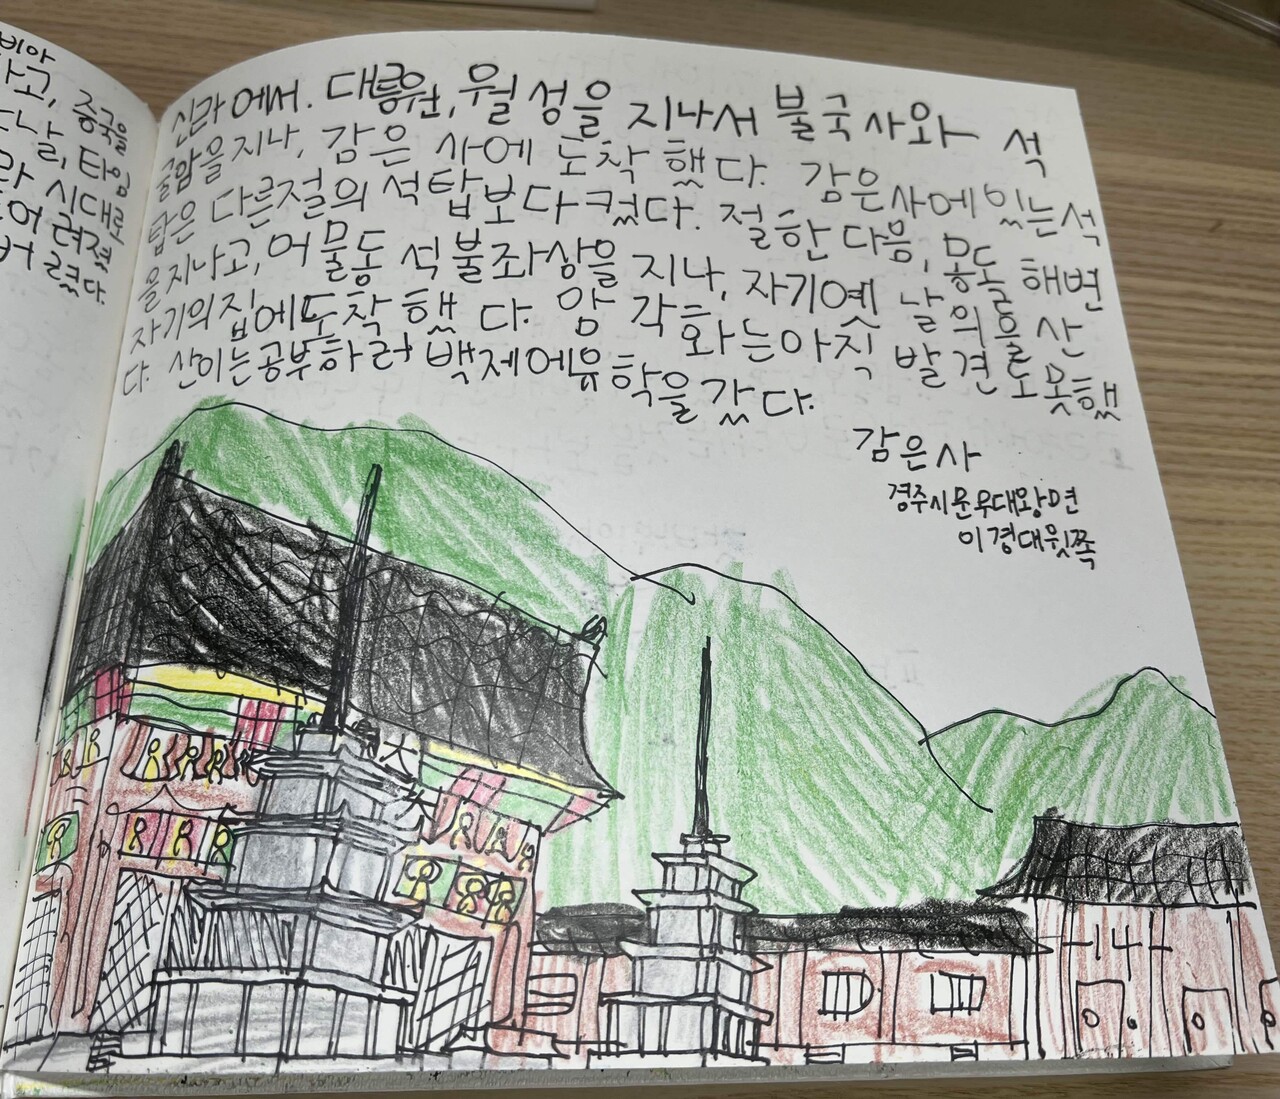 비아
고, 중국을
날, 타임
라 시대로
어 려졌
버 렸다.
신라에서. 대릉원, 월성을 지나서 불국사와 석
굴암을 지나, 감은 사에 도착 했다. 감은사에 있는 석
탑은 다른절의 석탑보다 컸다. 절한 다음, 몽돌 해변
을 지나고, 어물동 석불좌상을 지나, 자기옛 날의 울산
자기의 집에 도착 했다. 암 각화는 아직 발견도 못했
다. 산이는 공부하러 백제에 유학을 갔다.
감은사
경주시 문무대왕면
이경대윗쪽